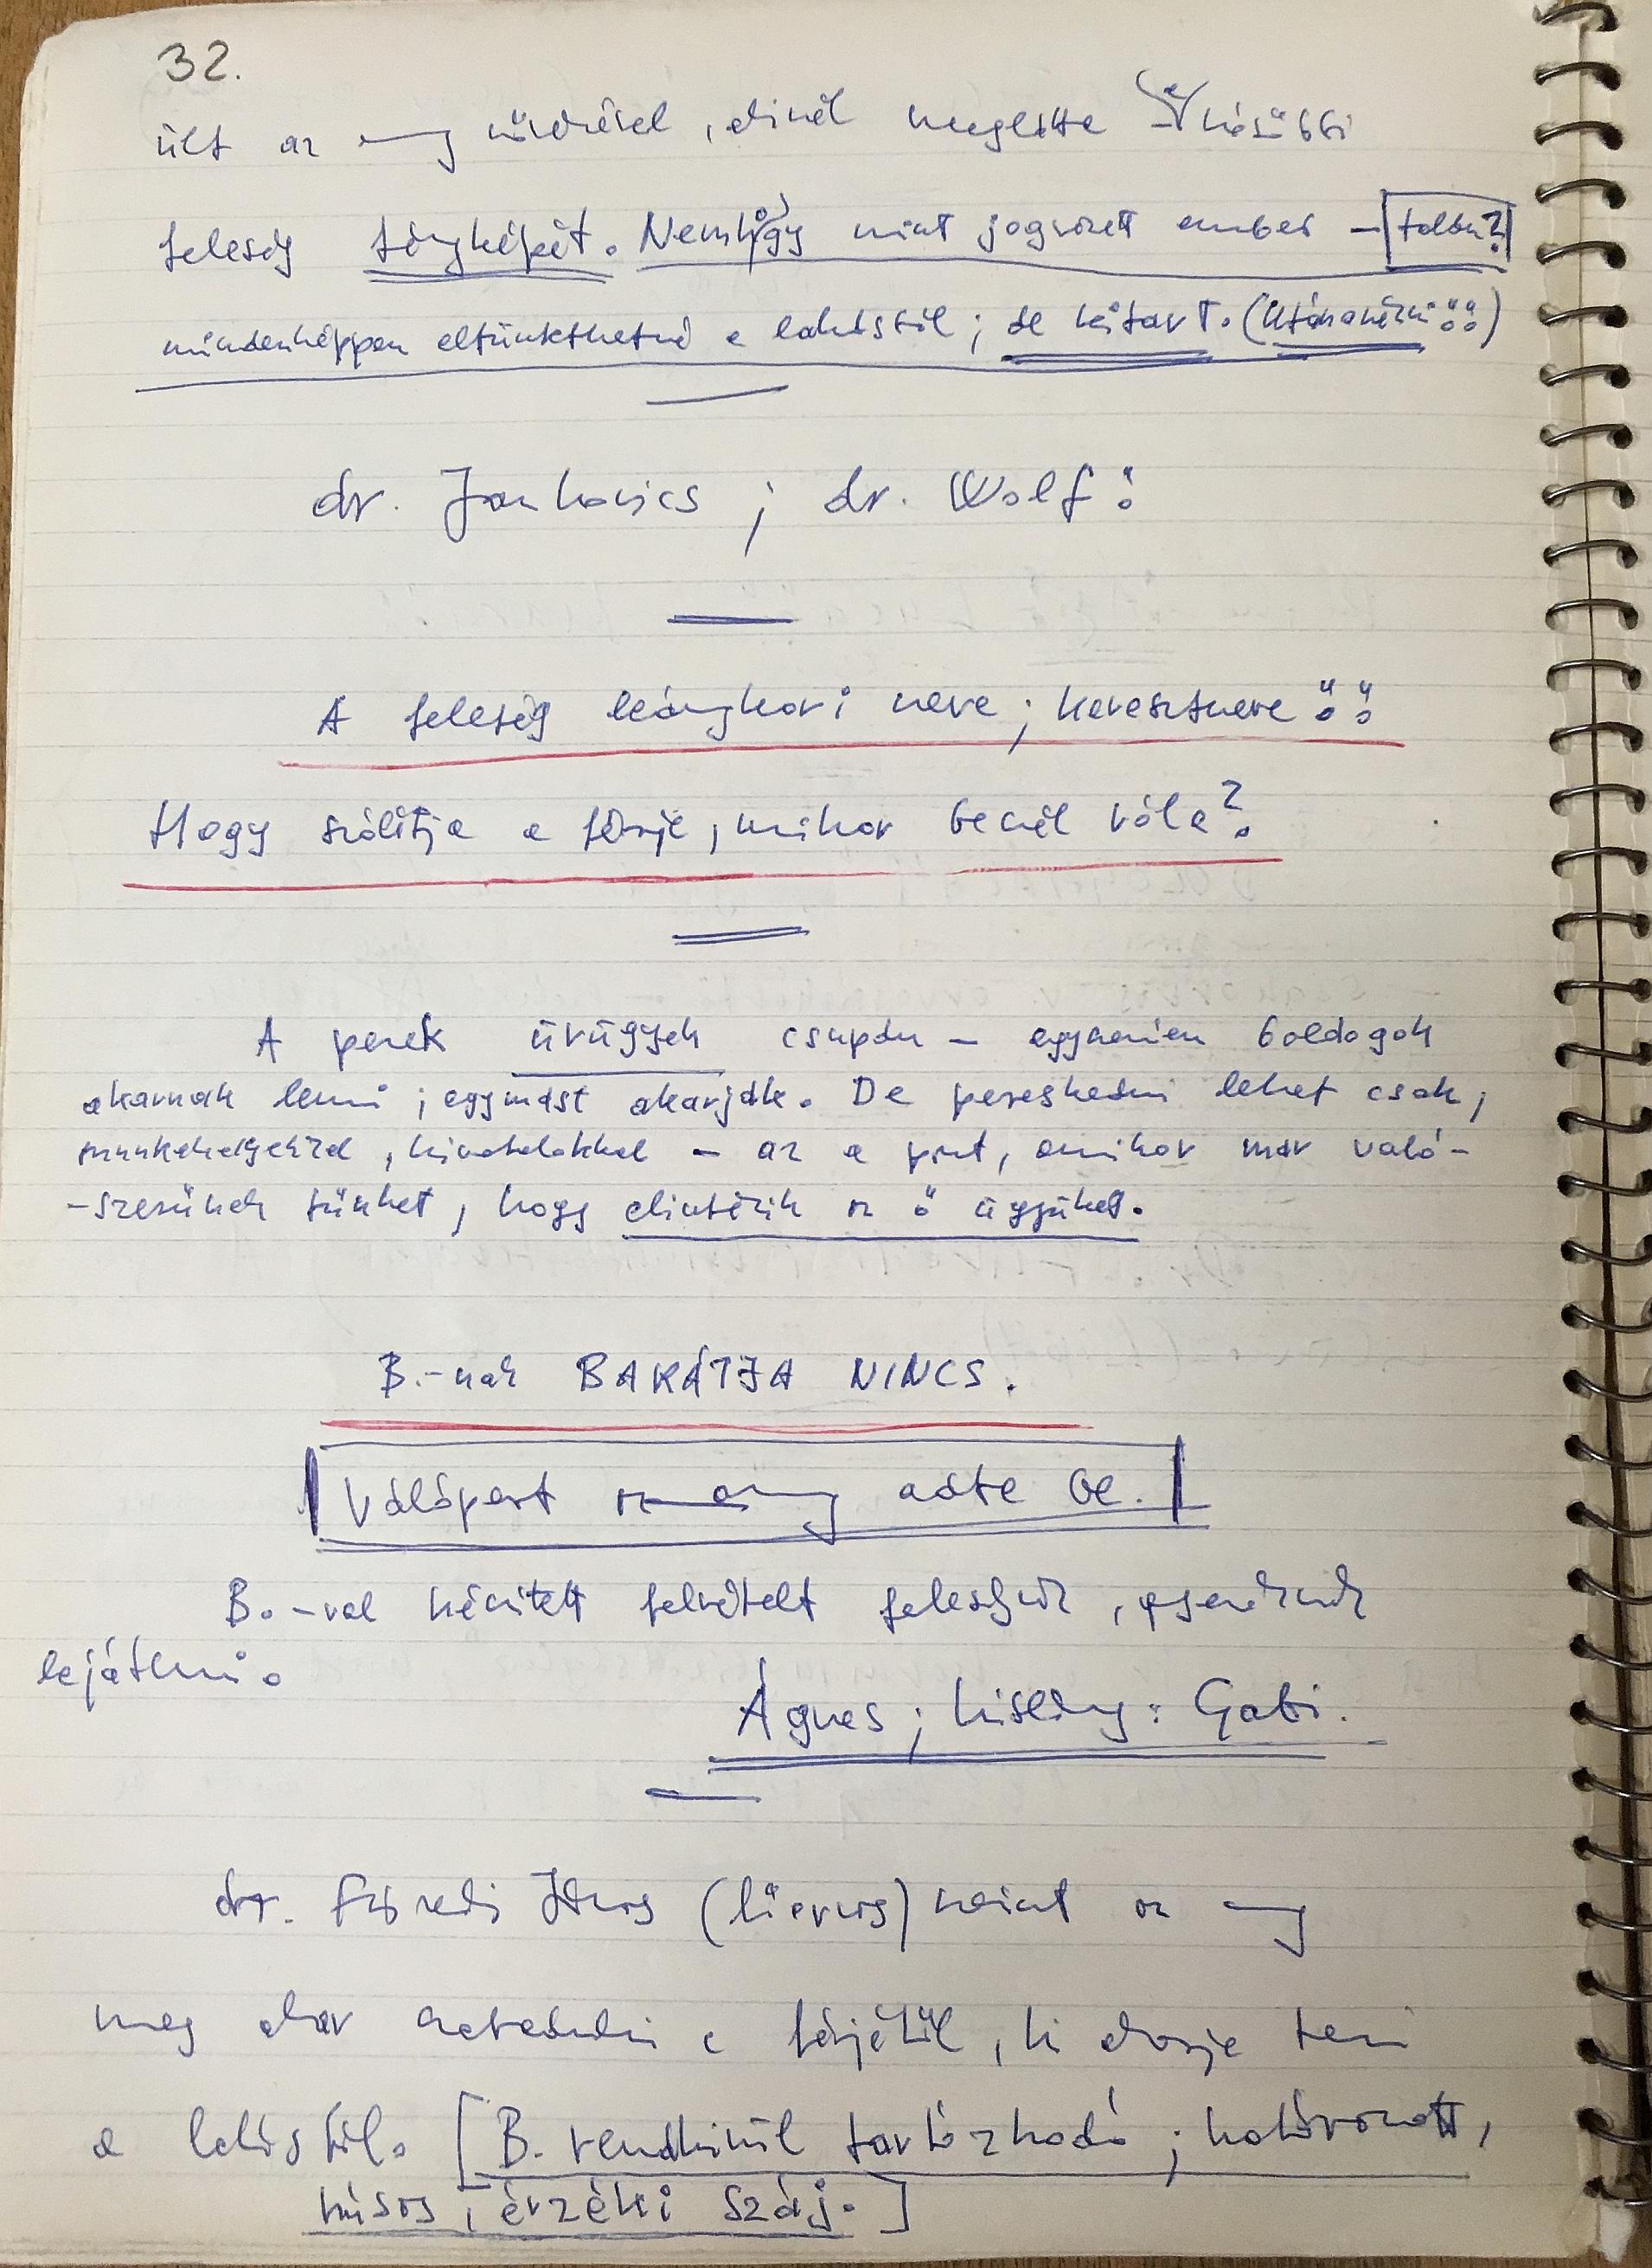 32.
ült az any , akinél meglátta a későbbi
feleség fényképét. Nemhogy mint jogvizett ember – tolta?
mindenképpen eltüntethetné a lakástól; de kitart. (Utánanézni!!)
dr. Jankovics ; dr. Wolf!
A feleség leánykori neve ; keresztneve!!
Hogy szólítja a férje, mikor beszél róla?
A perek ürügyek csupán – egyszerűen boldogok
akarnak lenni ; egymást akarják. De pereskedni lehet csak,
munkahelyekkel , hivatalokkal – az a pont, amikor már való-
-szerűnek tűnhet, hogy elintézik az ő ügyüket.
B.-nak BARÁTJA NINCS.
Válópert az any adta be.
B.-val készített felvételt feleségük ,
lejátszani.
Ágnes ; kislány : Gabi.
dr. János szerint az any
meg akar szabadulni a férjétől, ki akarja tenni
a lakástól. [B. rendkívül tartózkodó ; határozott,
húsos , érzéki száj.]